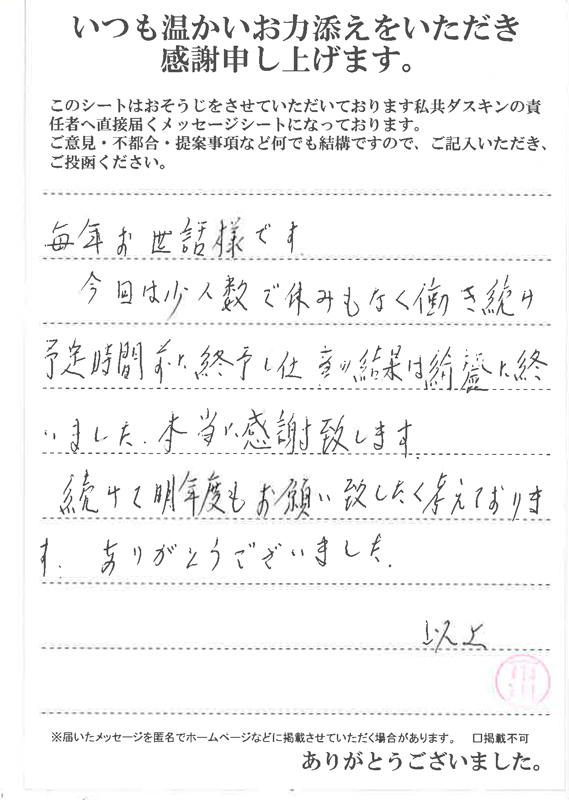 いつも温かいお力添えをいただき
感謝申し上げます。
このシートはおそうじをさせていただいております私共ダスキンの責
任者へ直接届くメッセージシートになっております。
ご意見・不都合・提案事項など何でも結構ですので、ご記入いただき、
ご投函ください。
毎年お世話様です
今回は少人数で休みもなく働き続け
予定時間前に終予し仕 結果は綺麗に終
いました、本当に感謝致します
続けて明年度もお願い致したく考えておりま
す、ありがとうございました.
以上
※届いたメッセージを匿名でホームページなどに掲載させていただく場合があります。 □掲載不可
ありがとうございました。